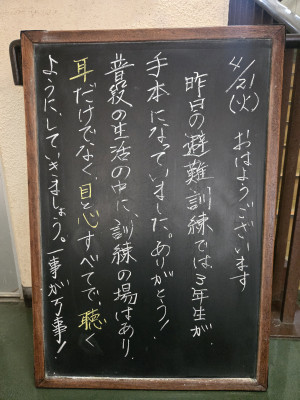 4/21(火) おはようございます
昨日の避難訓練では3年生が、
手本になっていました。ありがとう!
普段の生活の中に、訓練の場はあり、
耳だけでなく、目と心すべてで、聴く
ようにしていきましょう。一事が万事!